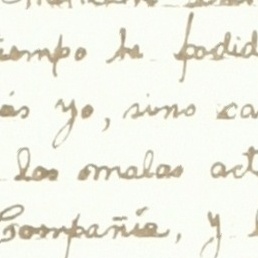 iempo he podid
ás yo, sino ca
los omalas act
Compañía, y